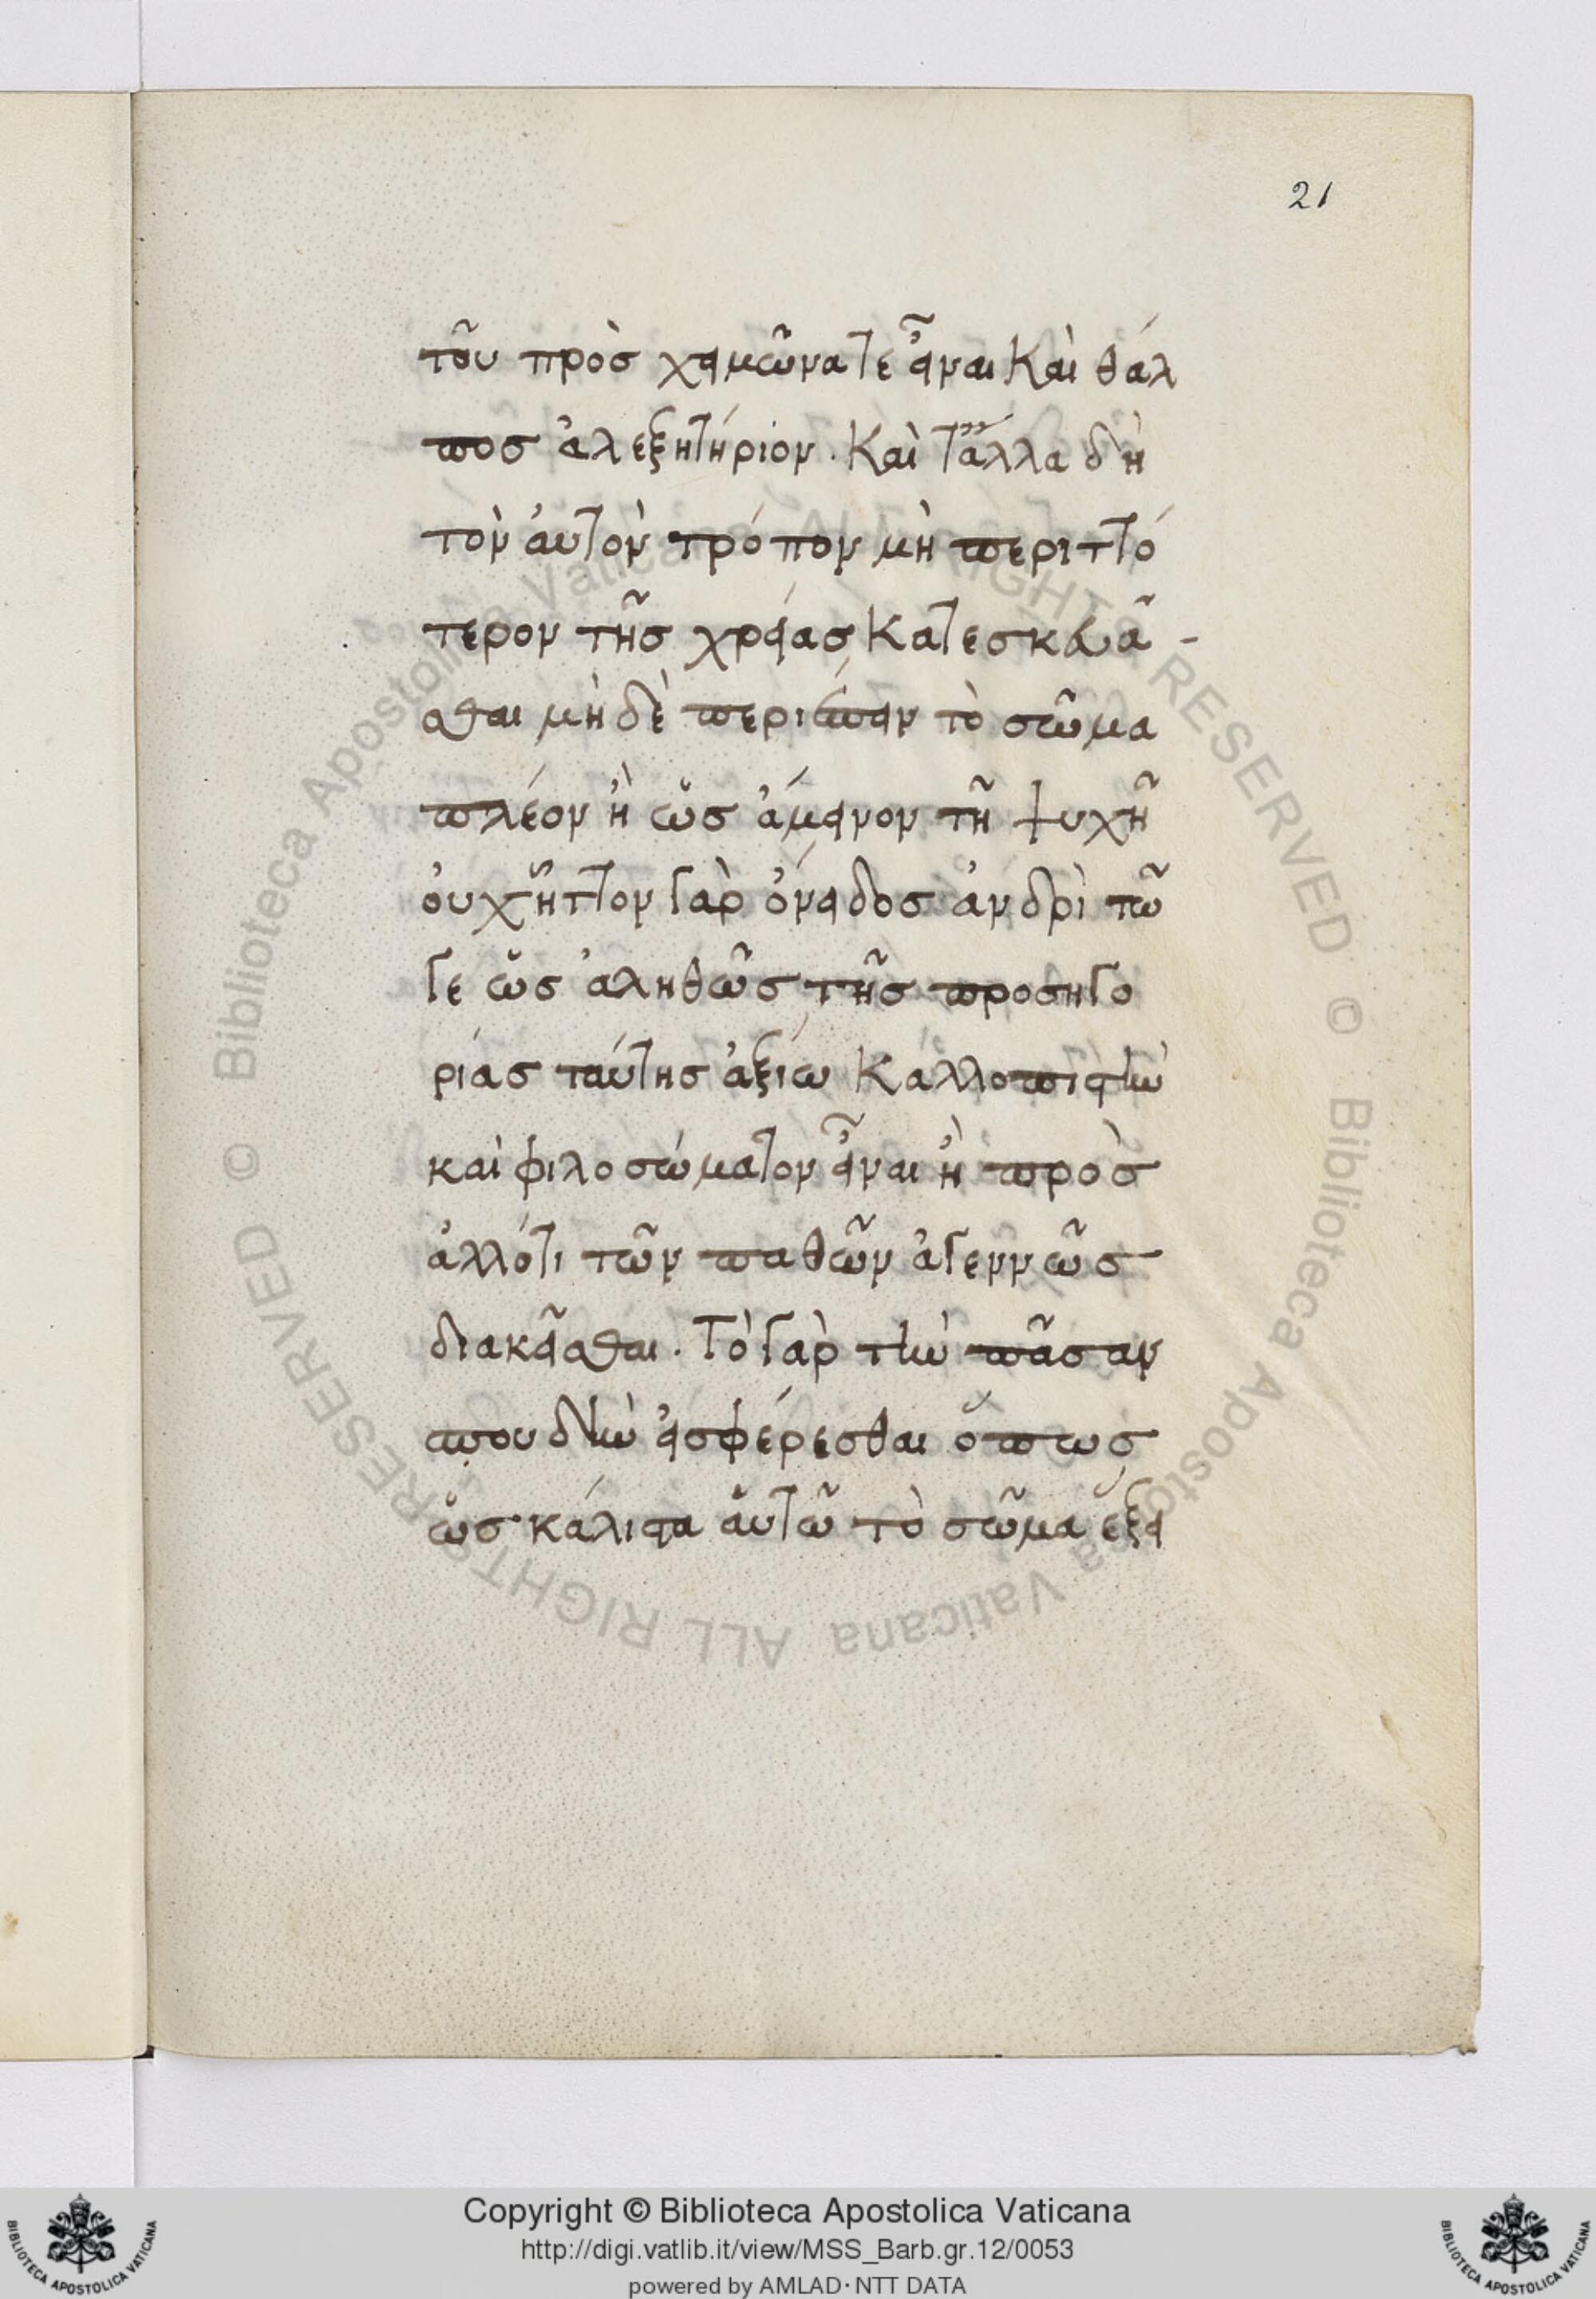 21
τοῦ πρὸσ χειμῶνά τε εἶναι Καὶ θάλ
ποσ ἀλεξητήριον. Καὶ τἄλλα δὴ
τὸν ἀυτὸν τρόπον μὴ περιττό
τερον τῆσ χρείας Κατεσκευᾶ-
σθαι μὴδὲ περιέπειν τὸ σῶμα
πλέον ἢ ὡσ ἄμεινον τῆ ψυχῆ
ὀυχ ἧττον γὰρ ὄνειδοσ ἀνδρὶ τῶ
γε ὡσ ἀληθῶσ τῆσ προσηγο
ρίασ ταύτησ ἀξίω Καλλοπιστὴν
καὶ φιλοσώματον εἶναι ἢ πρὸσ
ἀλλότι τῶν παθῶν ἀγεννῶσ
διακεῖσθαι. Τὸ γὰρ τὴν πᾶσαν
σπουδὴν ἐισφέρεσθαι ὅπως
ὡσ κάλιστα ἀυτῶ τὸ σῶμα ἕξει
Copyright © Biblioteca Apostolica Vaticana
http://digi.vatlib.it/view/MSS_Barb.gr.12/0053
powered by AMLAD·NTT DATA
BIBLIOTECA APOSTOLICA VATICANA
BIBLIOTECA APOSTOLICA VATICANA
© Biblioteca Apostolica Vaticana ALL RIGHTS RESERVED
© Biblioteca Apostolica Vaticana ALL RIGHTS RESERVED